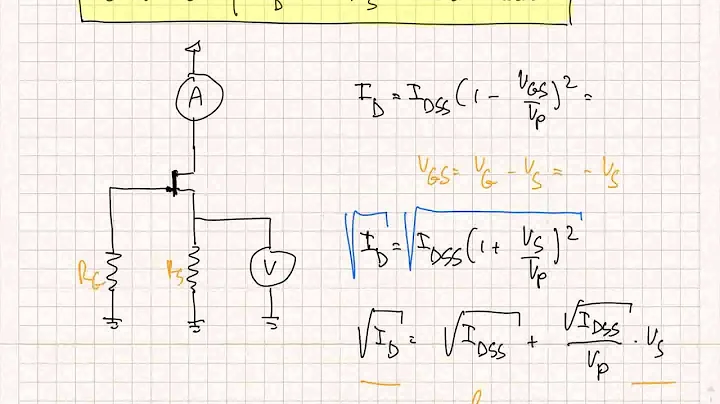 A
R_G
R_S
V
I_D = I_DSS (1 - V_GS/V_p)^2 =
V_GS = V_G - V_S = - V_S
√I_D = √I_DSS (1 + V_S/V_p)^2
√I_D = √I_DSS + √I_DSS/V_p · V_S